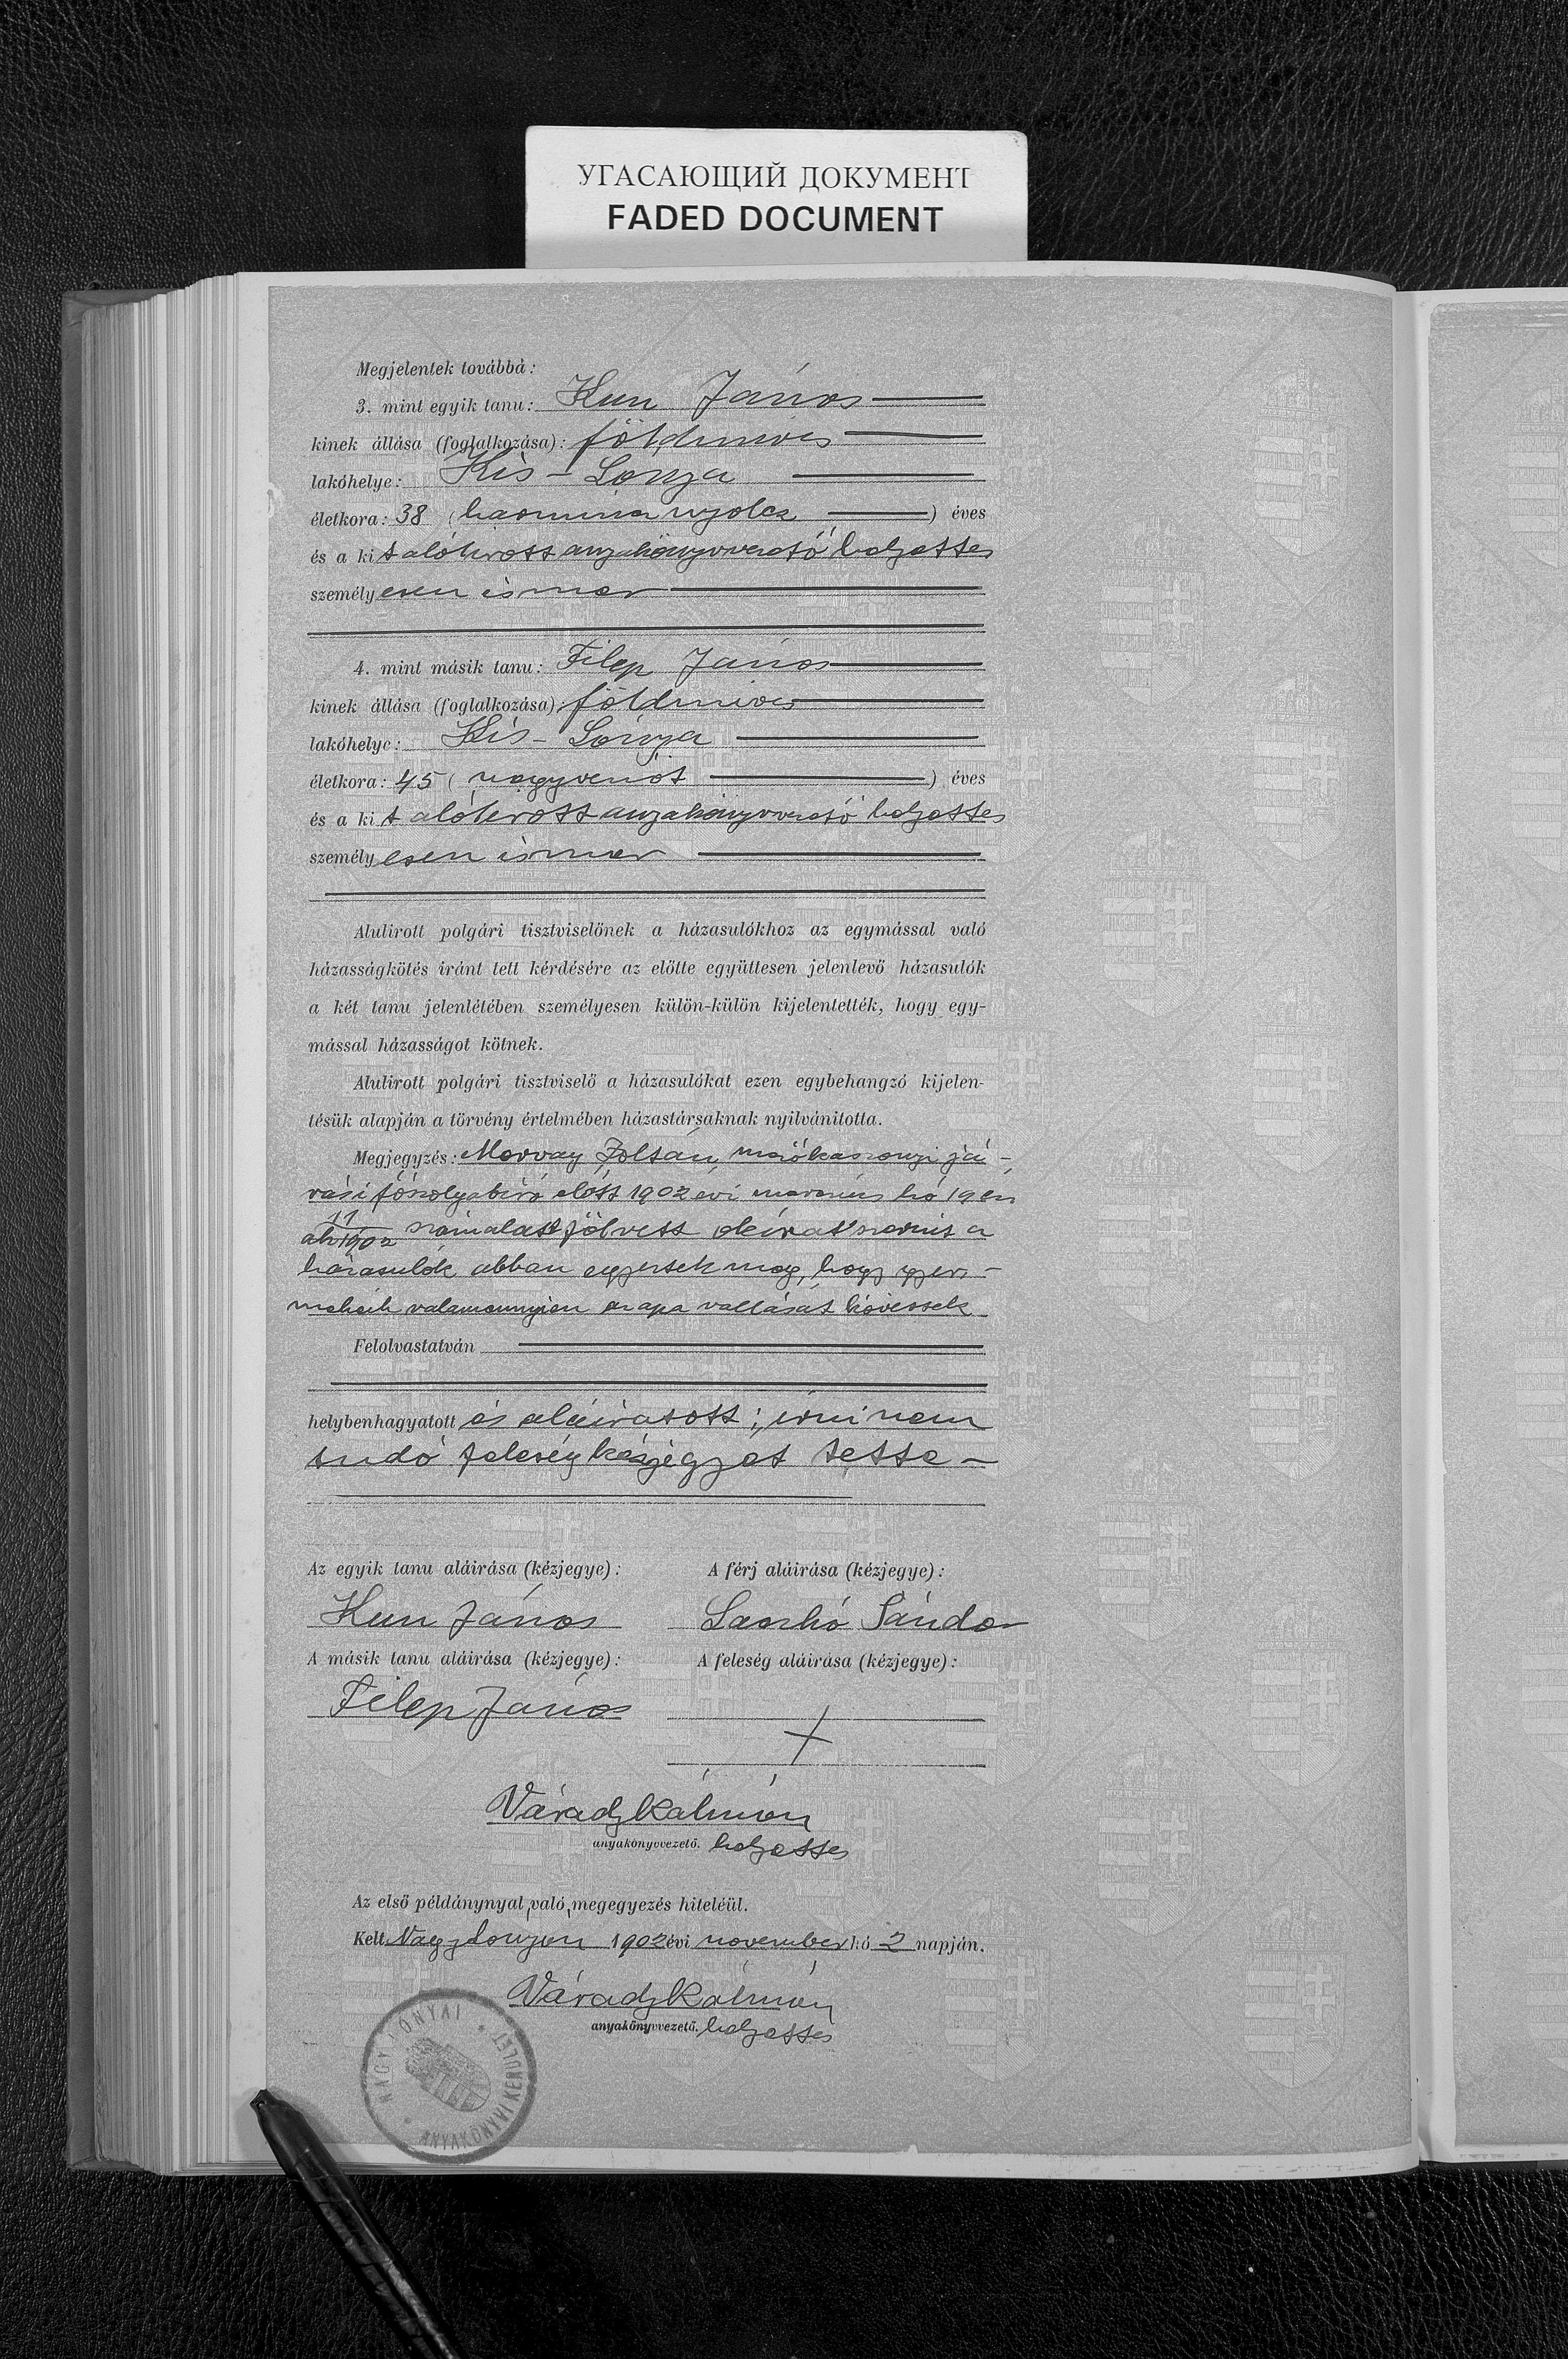 УГАСАЮЩИЙ ДОКУМЕНТ
FADED DOCUMENT
Megjelentek továbbá:
3. mint egyik tanu: Kun János
kinek állása (foglalkozása): földmives
lakóhelye: Kis-Lónya
életkora: 38 (harmincnyolcz) éves
és a kit alólirott anyakönyvvezető helyettes
személyesen ismer
4. mint másik tanu: Filep János
kinek állása (foglalkozása): földmives
lakóhelye: Kis-Lónya
életkora: 45 (negyvenöt) éves
és a kit alólirott anyakönyvvezető helyettes
személyesen ismer
Alulirott polgári tisztviselőnek a házasulókhoz az egymással való
házasságkötés iránt tett kérdésére az előtte együttesen jelenlevő házasulók
a két tanu jelenlétében személyesen külön-külön kijelentették, hogy egy-
mással házasságot kötnek.
Alulirott polgári tisztviselő a házasulókat ezen egybehangzó kijelen-
tésük alapján a törvény értelmében házastársaknak nyilvánitotta.
Megjegyzés: Morvay Zoltán mezőkaszonyi já-
rási főszolgabiró előtt 1902 évi hó 19 én
11/1902 szám alatt fölvett okirat szerint a
házasulók abban egyeztek meg, hogy gyer-
mekeik valamennyien az apa vallását kövessék
Felolvastatván
helybenhagyatott és aláiratott; irni nem
tudó feleség kézjegyet tette
Az egyik tanu aláirása (kézjegye): A férj aláirása (kézjegye):
Kun János Laskó Sándor
A másik tanu aláirása (kézjegye): A feleség aláirása (kézjegye):
Filep János +
Várady Kálmán
anyakönyvvezető. helyettes
Az első példánynyal való megegyezés hiteléül.
Kelt Nagylónyán 1902 évi november hó 2 napján.
Várady Kálmán
anyakönyvvezető. helyettes
NAGY LÓNYAI ANYAKÖNYVI KERÜLET